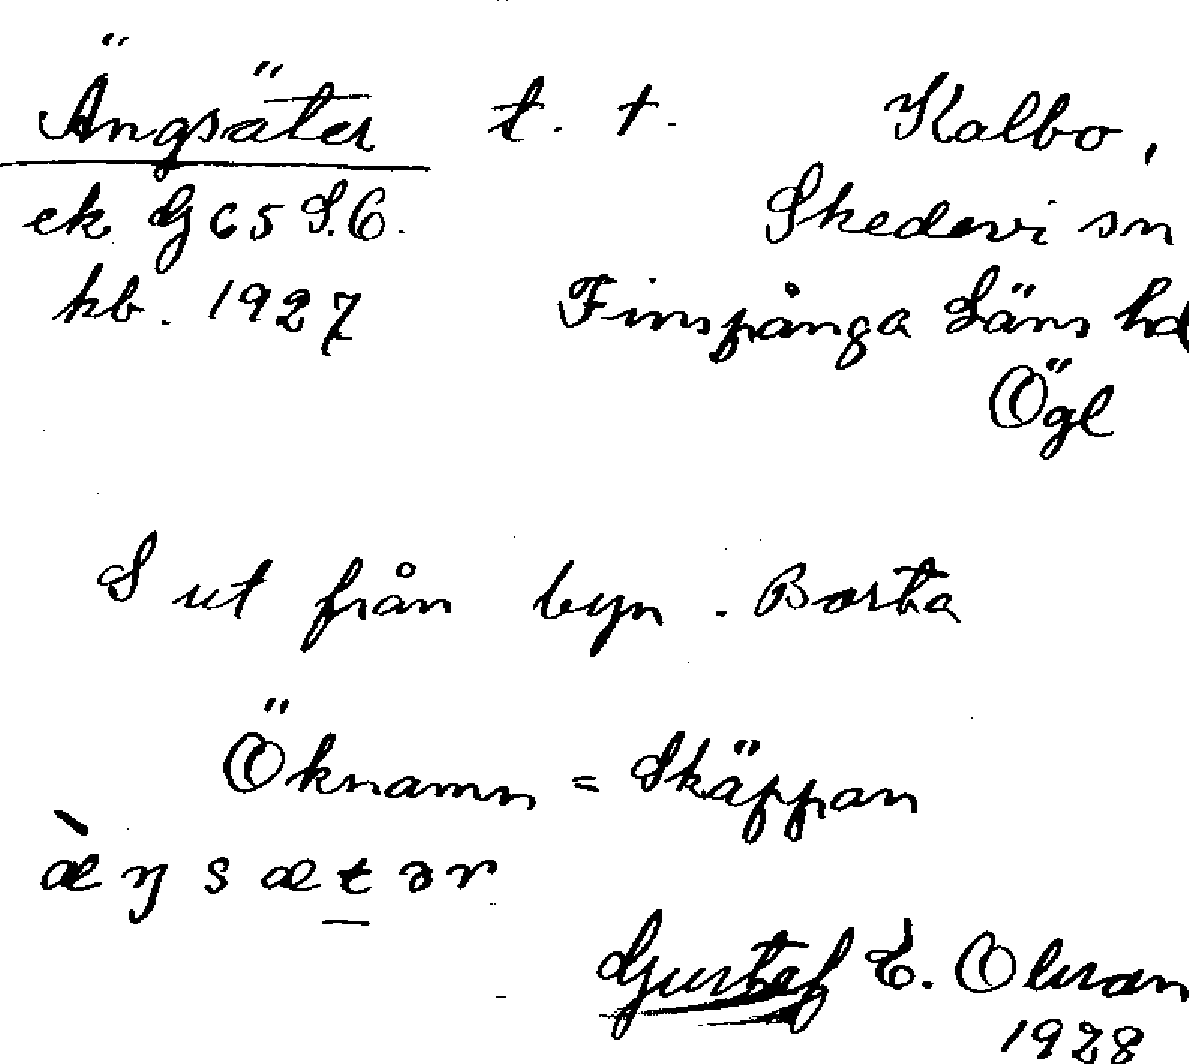 Ängsäter t. t. Kalbo,
ek G 65 S.O. Skedevi sn
kb. 1927 Finspånga Läns hd
Ögl
S ut från byn. Borta
Öknamn = Skäppan
æ̀ŋsætər
Gustef E. Olsson
1928